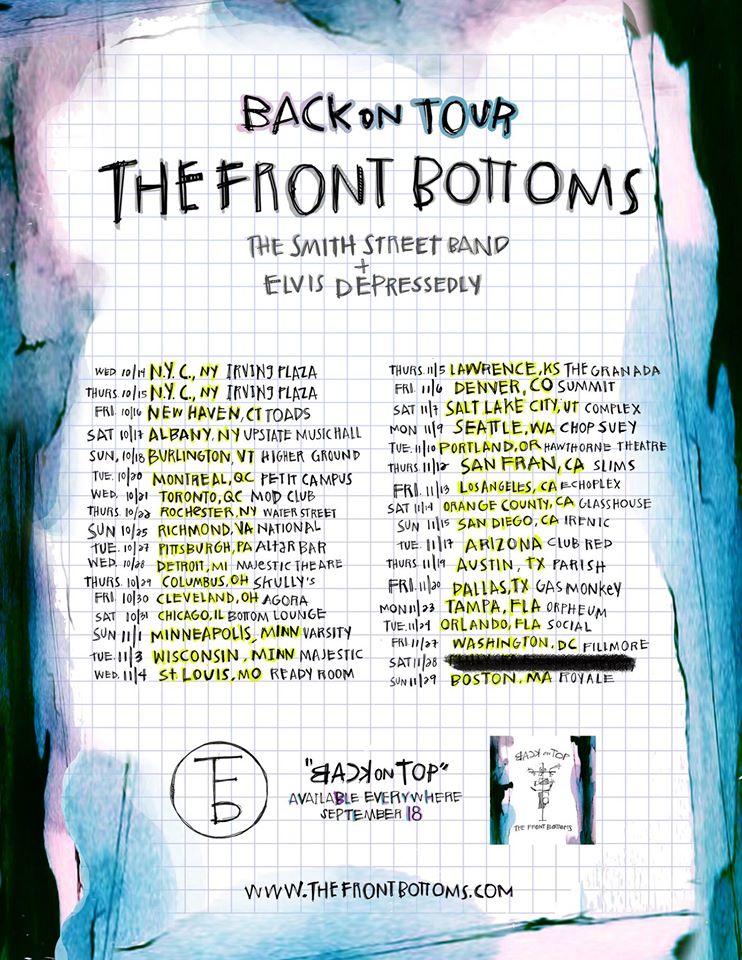 BACK ON TOUR
THE FRONT BOTTOMS
THE SMITH STREET BAND
+
ELVIS DEPRESSEDLY
WED 10/14 N.Y.C., NY IRVING PLAZA
THURS. 10/15 N.Y.C., NY IRVING PLAZA
FRI. 10/16 NEW HAVEN, CT TOADS
SAT 10/17 ALBANY, NY UPSTATE MUSIC HALL
SUN, 10/18 BURLINGTON, VT HIGHER GROUND
TUE. 10/20 MONTREAL, QC PETIT CAMPUS
WED. 10/21 TORONTO, QC MOD CLUB
THURS. 10/22 ROCHESTER, NY WATER STREET
SUN 10/25 RICHMOND, VA NATIONAL
TUE. 10/27 PITTSBURGH, PA ALTAR BAR
WED. 10/28 DETROIT, MI MAJESTIC THEARE
THURS. 10/29 COLUMBUS, OH SKULLY'S
FRI. 10/30 CLEVELAND, OH AGORA
SAT 10/31 CHICAGO, IL BOTTOM LOUNGE
SUN 11/1 MINNEAPOLIS, MINN VARSITY
TUE. 11/3 WISCONSIN, MINN MAJESTIC
WED. 11/4 ST. LOUIS, MO READY ROOM
THURS. 11/5 LAWRENCE, KS THE GRANADA
FRI. 11/6 DENVER, CO SUMMIT
SAT 11/7 SALT LAKE CITY, UT COMPLEX
MON 11/9 SEATTLE, WA CHOP SUEY
TUE. 11/10 PORTLAND, OR HAWTHORNE THEATRE
THURS. 11/12 SAN FRAN, CA SLIMS
FRI. 11/13 LOS ANGELES, CA ECHOPLEX
SAT 11/14 ORANGE COUNTY, CA GLASSHOUSE
SUN 11/15 SAN DIEGO, CA IRENIC
TUE. 11/17 ARIZONA CLUB RED
THURS. 11/19 AUSTIN, TX PARISH
FRI. 11/20 DALLAS, TX GAS MONKEY
MON 11/23 TAMPA, FLA ORPHEUM
TUE. 11/24 ORLANDO, FLA SOCIAL
FRI 11/27 WASHINGTON, DC FILLMORE
SAT 11/28
SUN 11/29 BOSTON, MA ROYALE
TFB
"BACK ON TOP"
AVAILABLE EVERYWHERE
SEPTEMBER 18
BACK ON TOP
THE FRONT BOTTOMS
WWW.THEFRONTBOTTOMS.COM